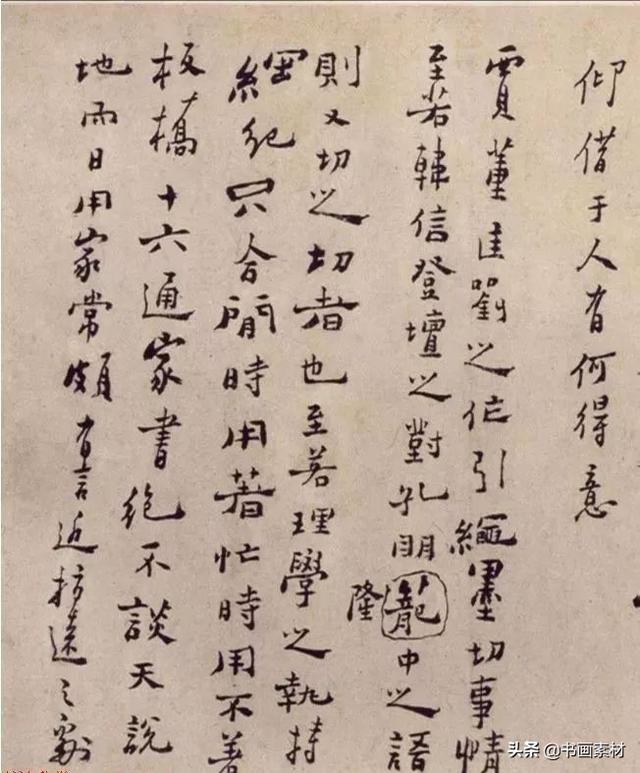 仰借于人有何得意
賈董匡劉之作引繩墨切事情
至若韓信登壇之對孔明中之語
隆
則又切之切者也至若理學之執持
綱紀只合閒時用著忙時用不著
板橋十六通家書絕不談天說
地而日用家常頗有言近指遠之處
头条 @书画素材